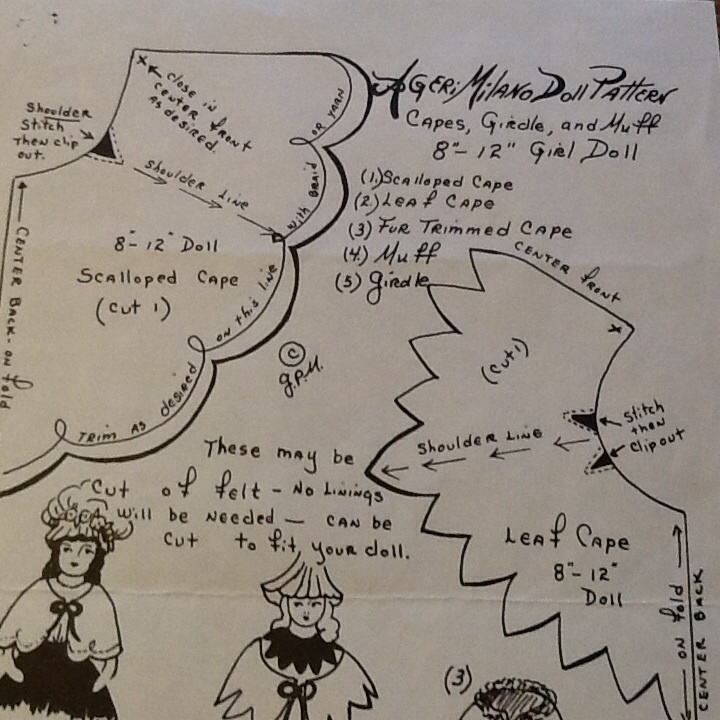 A Geri Milano Doll Pattern
Capes, Girdle, and Muff
8"-12" Girl Doll
(1.) Scalloped Cape
(2.) Leaf Cape
(3) Fur Trimmed Cape
(4.) Muff
(5) Girdle
X
Close in
center front
as desired.
Shoulder
Stitch
Then clip
out.
Shoulder Line
8"-12" Doll
Scalloped Cape
(Cut 1)
Center Back - on fold
Trim as desired on this line with braid or yarn
© G.P.M.
These may be
cut of felt - no linings
will be needed - can be
cut to fit your doll.
Center front
X
(Cut 1)
Stitch
then
clip out
Shoulder Line
Leaf Cape
8"-12"
Doll
on fold
Center Back
(3)